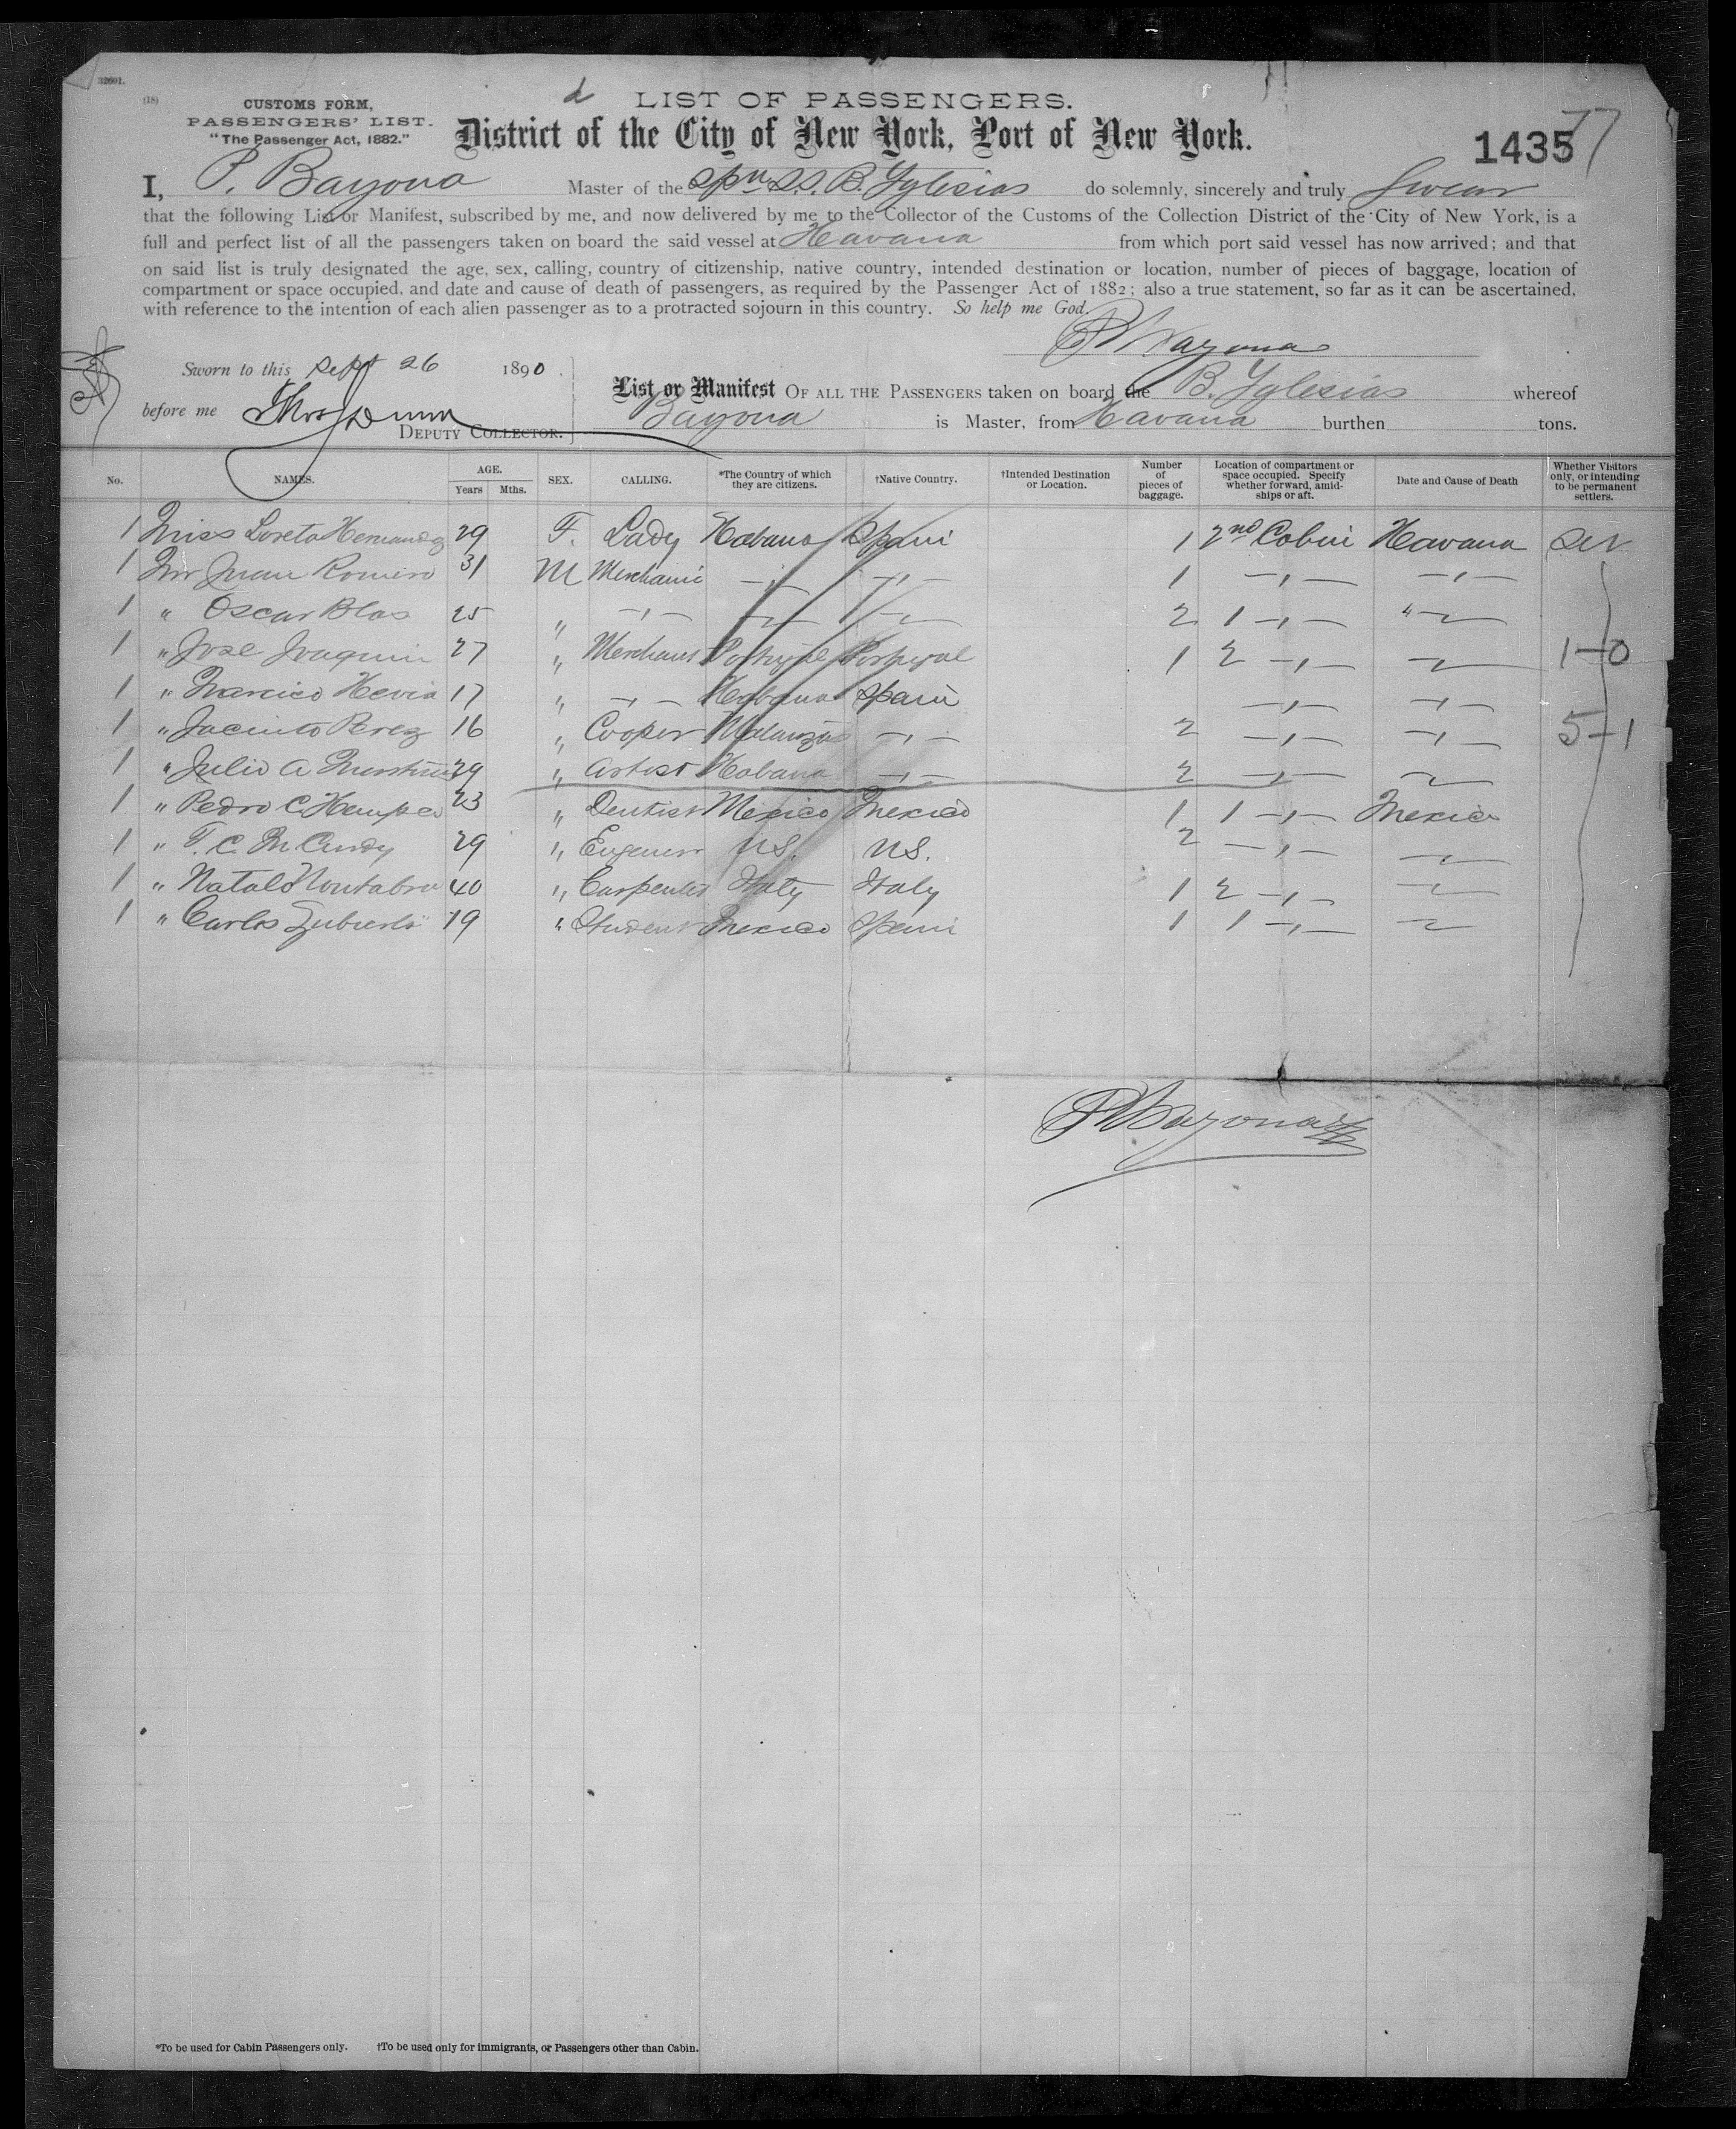 32601.
(18)
CUSTOMS FORM,
PASSENGERS' LIST.
"The Passenger Act, 1882."
d
LIST OF PASSENGERS.
District of the City of New York, Port of New York.
1435
77
I, P. Bayona Master of the Spn SS. B. Yglesias do solemnly, sincerely and truly Swear
that the following List or Manifest, subscribed by me, and now delivered by me to the Collector of the Customs of the Collection District of the City of New York, is a
full and perfect list of all the passengers taken on board the said vessel at Havana from which port said vessel has now arrived; and that
on said list is truly designated the age, sex, calling, country of citizenship, native country, intended destination or location, number of pieces of baggage, location of
compartment or space occupied, and date and cause of death of passengers, as required by the Passenger Act of 1882; also a true statement, so far as it can be ascertained,
with reference to the intention of each alien passenger as to a protracted sojourn in this country. So help me God.
P Bayona
Sworn to this Sept 26 1890.
before me
DEPUTY COLLECTOR.
List or Manifest OF ALL THE PASSENGERS taken on board the B. Yglesias whereof
Bayona is Master, from Havana burthen tons.
No. NAMES. AGE. Years Mths. SEX. CALLING. *The Country of which they are citizens. †Native Country. †Intended Destination or Location. Number of pieces of baggage. Location of compartment or space occupied. Specify whether forward, amidships or aft. Date and Cause of Death Whether Visitors only, or intending to be permanent settlers.
1 Miss Loreto Hernandez 29 F. Lady Habana Spain 1 2nd Cabin Havana
1 Mr Juan Romero 31 M Merchant —"— —"— 1 —"— —"—
1 " Oscar Blas 25 " —"— —"— —"— 2 1 —"— "—
1 " Jose Joaquin 27 " Merchant Portugal Portugal 1 2 —"— —"— 1-0
1 " Narciso Hevia 17 " —"— Habana Spain —"— —"—
1 " Jacinto Perez 16 " Cooper Matanzas —"— 2 —"— —"— 5-1
1 " Julio A 29 " Artist Habana —"— 2 —"— —"—
1 " Pedro C. 23 " Dentist Mexico Mexico 1 1 —"— Mexico
1 " F. C. McCurdy 29 " Engineer US. US. 2 —"— —"—
1 " Natale 40 " Carpenter Italy Italy 1 2 —"— —"—
1 " Carlos 19 " Student Mexico Spain 1 1 —"— —"—
P Bayona
*To be used for Cabin Passengers only. †To be used only for immigrants, or Passengers other than Cabin.